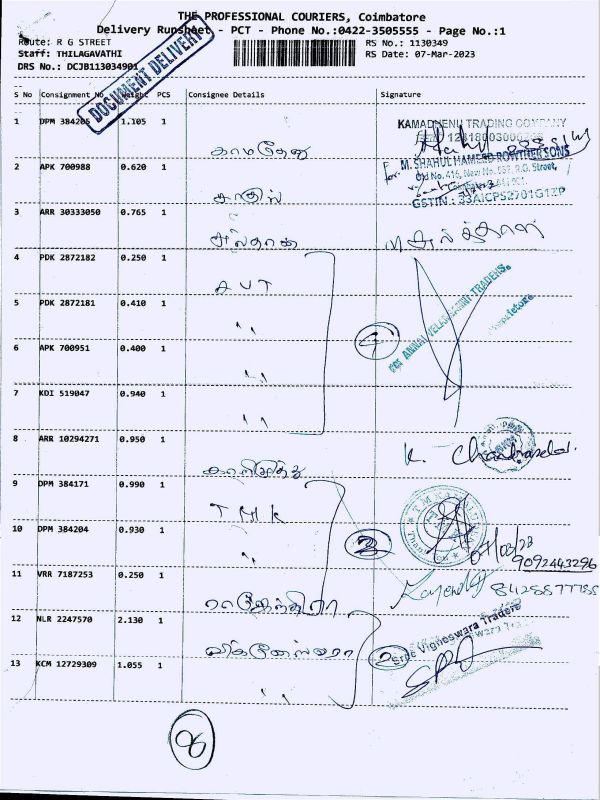 THE PROFESSIONAL COURIERS, Coimbatore
Delivery Runsheet - PCT - Phone No.:0422-3505555 - Page No.:1
Route: R G STREET
Staff: THILAGAVATHI
DRS No.: DCJB113034901
RS No.: 1130349
RS Date: 07-Mar-2023
DOCUMENT DELIVERY
S No Consignment No Weight PCS Consignee Details Signature
1 DPM 384205 1.105 1 காமதேனு
KAMADHENU TRADING COMPANY
2 APK 700988 0.620 1 காதர்
For M. SHAHUL HAMEED ROWTHER SONS
Old No. 416, New No. R.G. Street,
GSTIN : 33AICPS2701G1ZP
3 ARR 30333050 0.765 1
4 PDK 2872182 0.250 1 AVT
5 PDK 2872181 0.410 1 "
6 APK 700951 0.400 1 "
7 KDI 519047 0.940 1 "
4
For ANNAI VELANKANNI TRADERS.
Proprietor
8 ARR 10294271 0.950 1
K. Chandrasekar
9 DPM 384171 0.990 1 TMK
10 DPM 384204 0.930 1 "
07/03/23
9092443296
11 VRR 7187253 0.250 1 ராஜேந்திரா
12 NLR 2247570 2.130 1 விக்னேஸ்வரா
13 KCM 12729309 1.055 1 "
2
Sree Vigneswara Traders
96